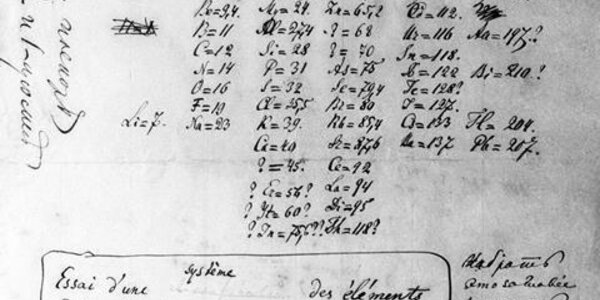 Be=9,4 Mg=24. Zn=65,2 Cd=112.
B=11 Al=27,4 ?=68 Ur=116 Au=197?
C=12 Si=28 ?=70 Sn=118.
N=14 P=31 As=75 Sb=122 Bi=210?
O=16 S=32 Se=79,4 Te=128?
F=19 Cl=35,5 Br=80 I=127.
Li=7. Na=23 K=39. Rb=85,4 Cs=133 Tl=204.
Ca=40 Sr=87,6 Ba=137 Pb=207.
?=45. Ce=92
? Er=56? La=94
? Yt=60? Di=95
? In=75,6?? Th=118?
Essai d'une système
des éléments